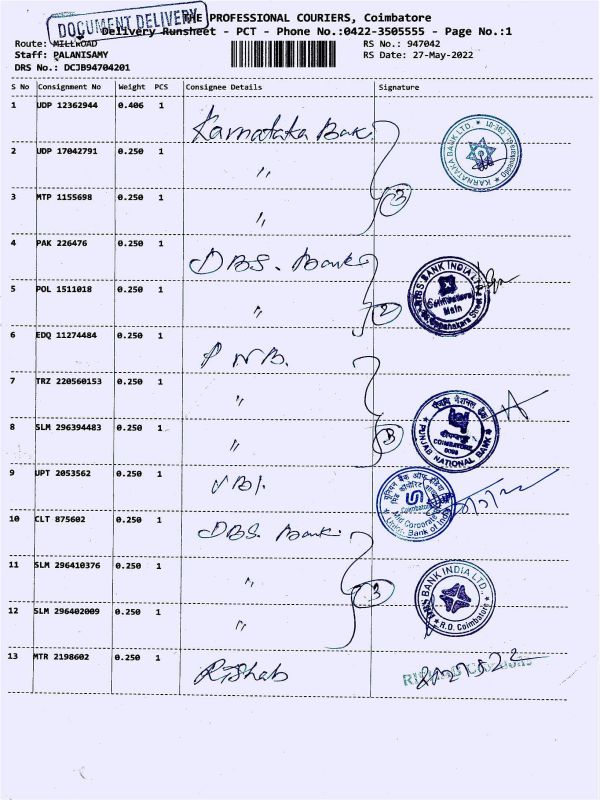 DOCUMENT DELIVERY
THE PROFESSIONAL COURIERS, Coimbatore
Delivery Runsheet - PCT - Phone No.:0422-3505555 - Page No.:1
Route: MILLROAD
RS No.: 947042
Staff: PALANISAMY
RS Date: 27-May-2022
DRS No.: DCJB94704201
S No Consignment No Weight PCS Consignee Details Signature
1 UDP 12362944 0.406 1 Karnataka Bak
KARNATAKA BANK LTD.
2 UDP 17042791 0.250 1 〃
3 MTP 1155698 0.250 1 〃
3
4 PAK 226476 0.250 1 DBS. Bank
DBS BANK INDIA LTD
Coimbatore
Main
5 POL 1511018 0.250 1 〃
2
6 EDQ 11274484 0.250 1 PNB.
7 TRZ 220560153 0.250 1 〃
पंजाब नैशनल बैंक
COIMBATORE
PUNJAB NATIONAL BANK
8 SLM 296394483 0.250 1 〃
3
9 UPT 2053562 0.250 1 UBI.
यूनियन बैंक ऑफ इंडिया
Coimbatore
Mid Corporate
Union Bank of India
10 CLT 875602 0.250 1 DBS. Bank
11 SLM 296410376 0.250 1 〃
3
BANK INDIA LTD.
R.O. Coimbatore
12 SLM 296402009 0.250 1 〃
13 MTR 2198602 0.250 1